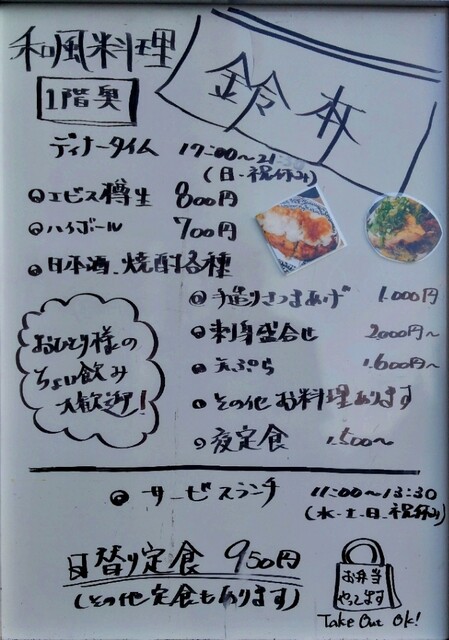 和風料理
鈴本
1階奥
ディナータイム 17:00〜21:30
(日・祝休み)
エビス樽生 800円
ハイボール 700円
日本酒、焼酎各種
手造りさつまあげ 1.000円
刺身盛合せ 2000円〜
天ぷら 1.600円〜
その他お料理あります
夜定食 1.500〜
おひとり様の
ちょい飲み
大歓迎!
サービスランチ 11:00〜13:30
(水・土・日・祝休み)
日替り定食 950円
(その他定食もあります)
お弁当
やってます
Take Out Ok!